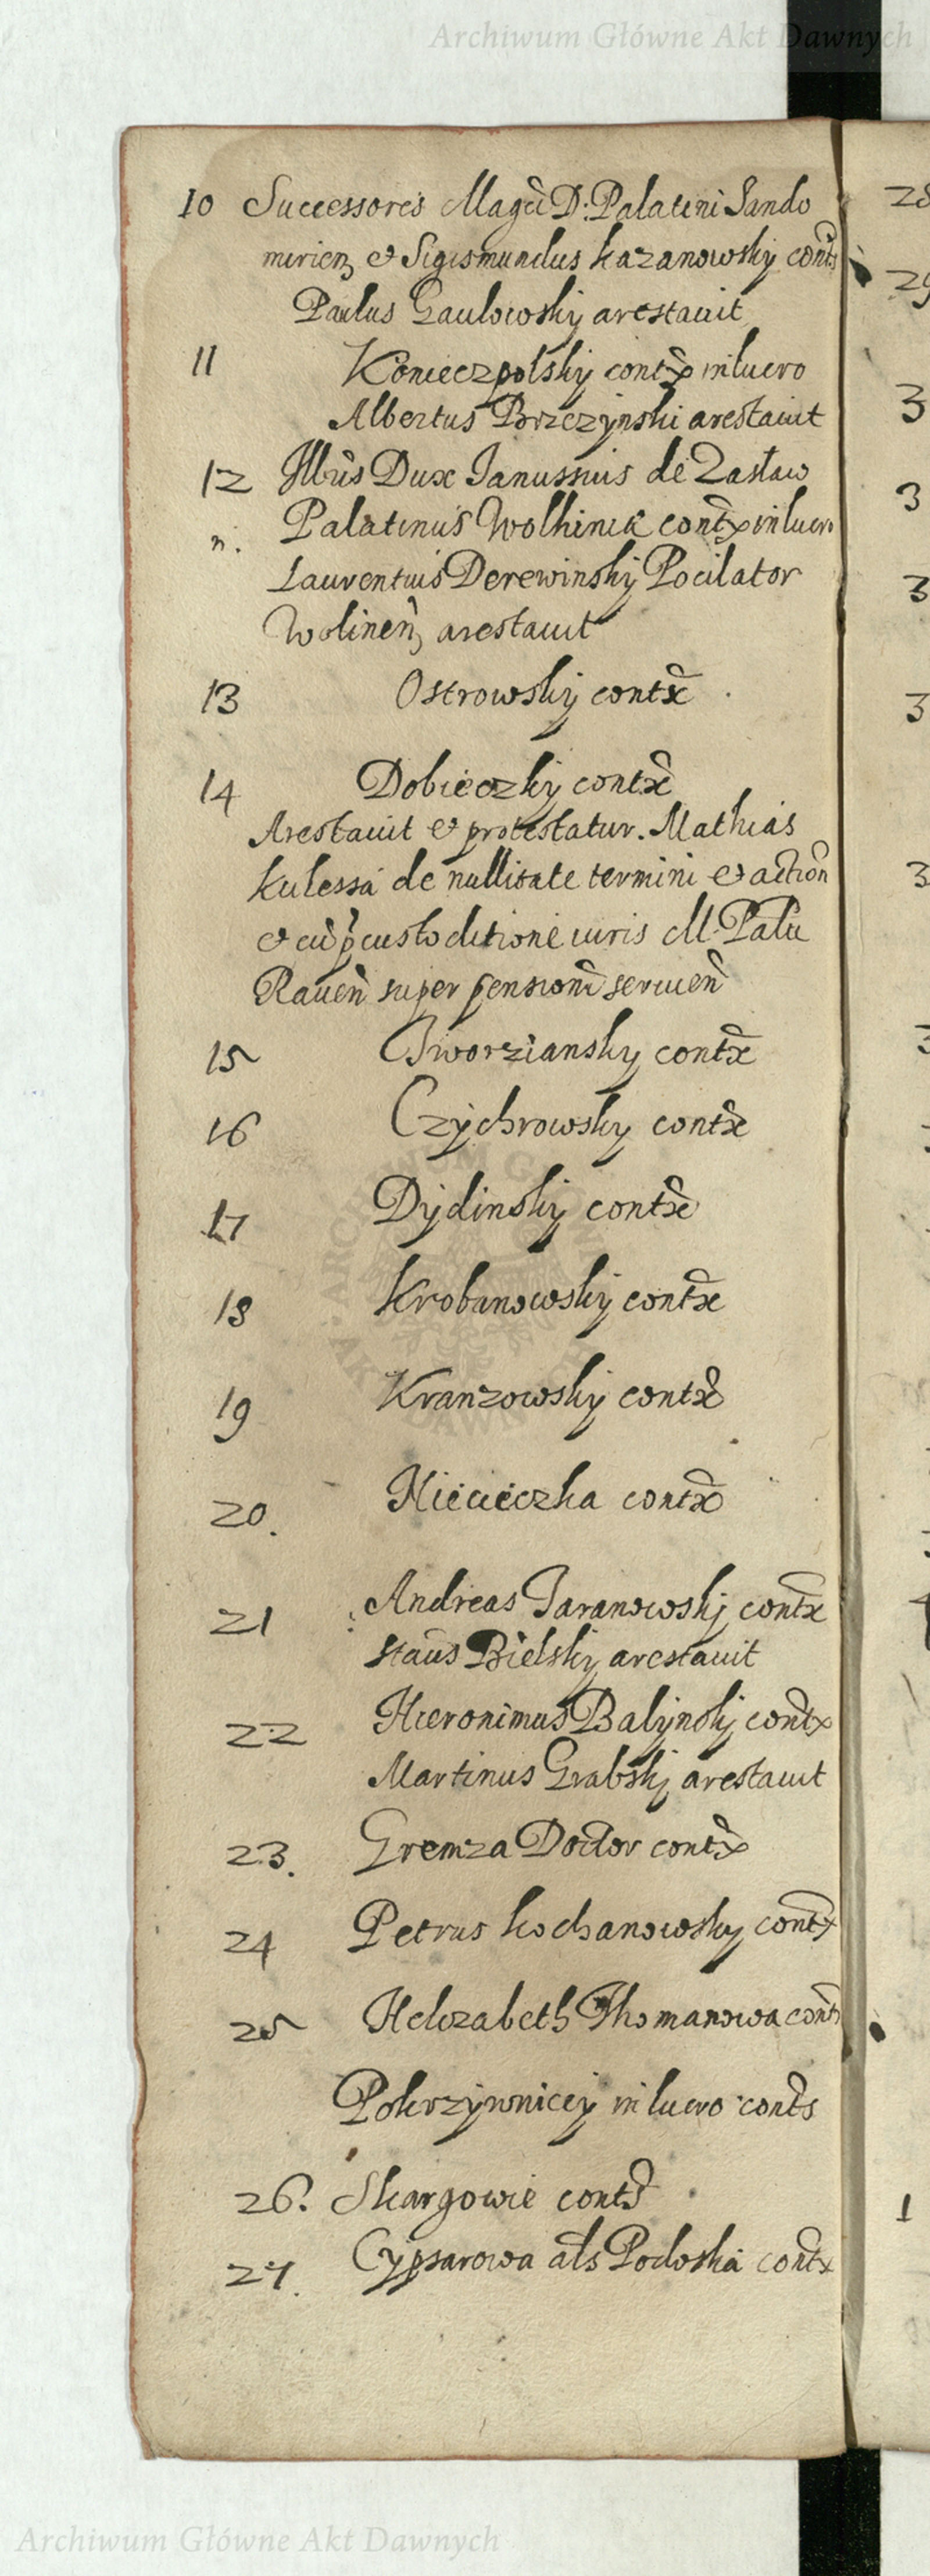 Archiwum Główne Akt Dawnych
10 Successores Magci D. Palatini Sando
mirien et Sigismundus Kazanowsky contx
Paulus Gaulowsky arestauit
11 Konieczpolsky contx in lucro
Albertus Brzezynski arestauit
12 Illris Dux Ianussius de Zasław
Palatinus Wolhinie contx in lucro
n. Laurentius Derewinsky Pocilator
Wolinen arestauit
13 Ostrowsky contx
14 Dobieczky contx
Arestauit et protestatur. Mathias
Kulessa de nullitate termini et action
et cu p custoditione iuris M. Pala
Rauen super pension seruen
15 Tworziansky contx
16 Czychrowsky contx
17 Dydinsky contx
18 Krobanowsky contx
19 Kranzowsky contx
20. Niecieczka contx
21 Andreas Taranowsky contx
Staus Bielsky arestauit
22 Hieronimus Balynsky contx
Martinus Grabsky arestauit
23. Gremza Doctor contx
24 Petrus Kochanowsky contx
25 Helizabeth Thomanowa contx
Pokrzywniccy in lucro conts
26. Skargowie conts
27. Cypsarowa als Podoska contx
28
29
3
3
3
3
3
1
Archiwum Główne Akt Dawnych